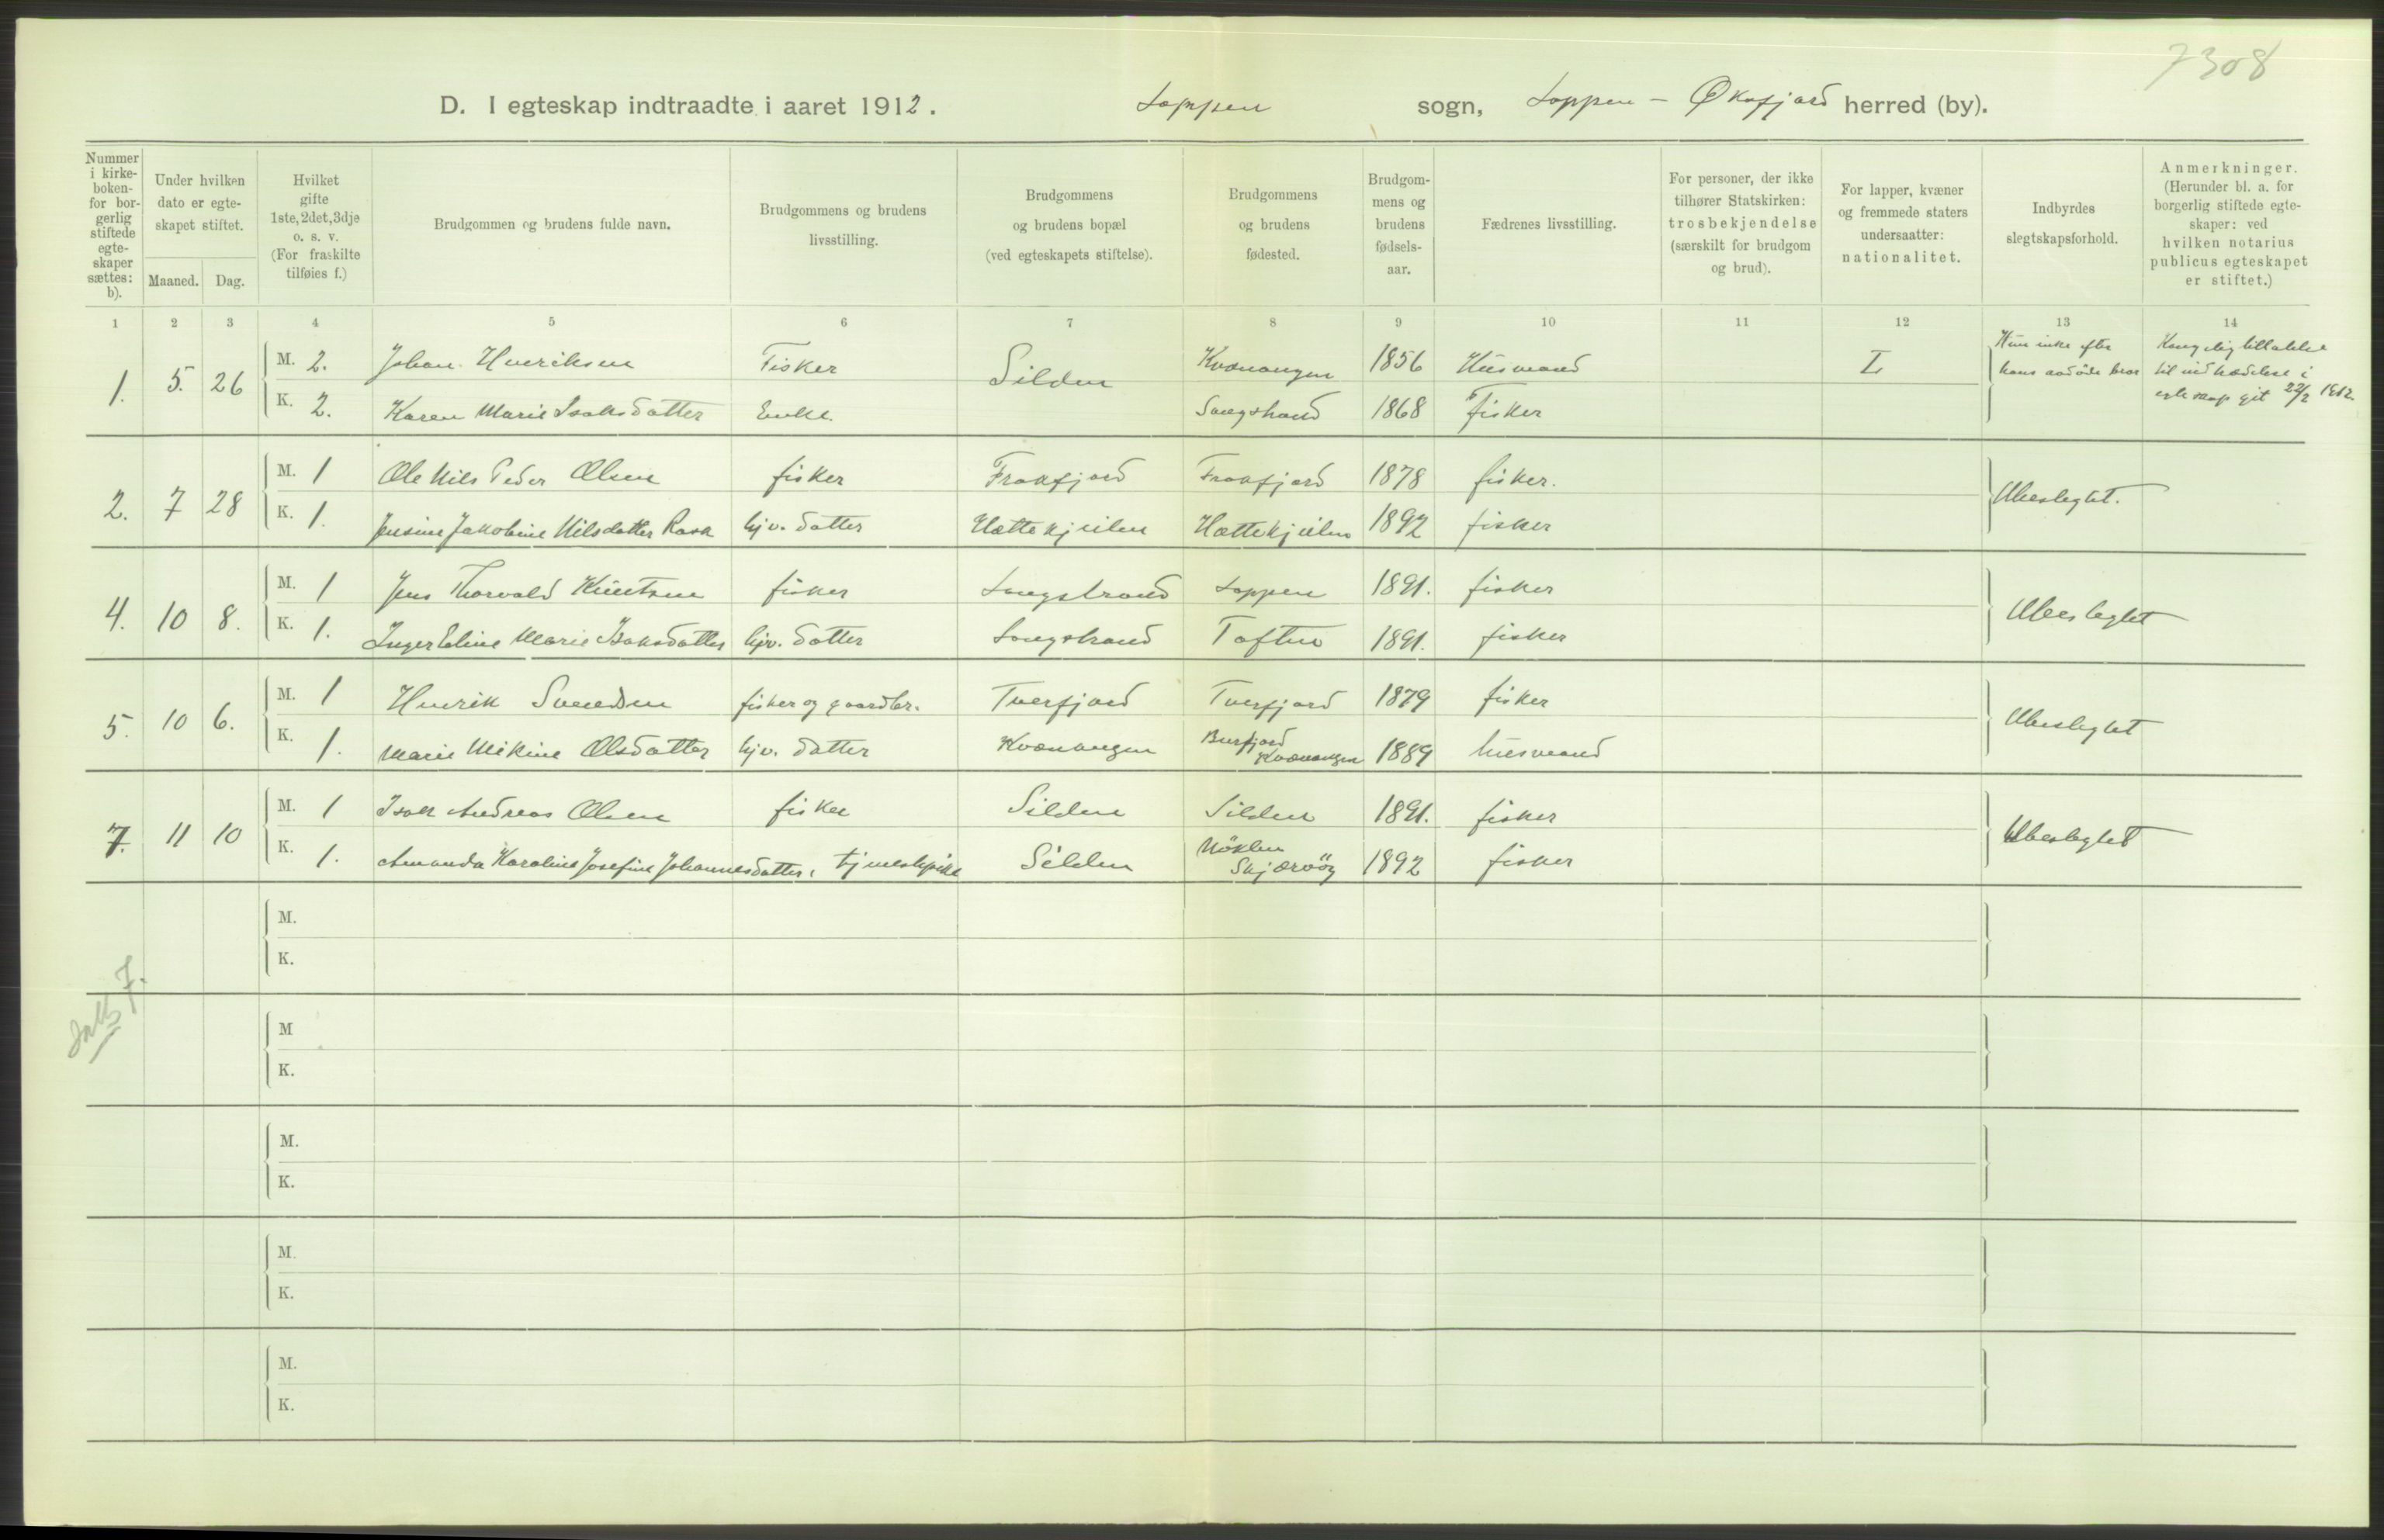 7308
D. I egteskap indtraadte i aaret 1912. Loppen sogn, Loppen - Øksfjord herred (by).
Nummer i kirkeboken- for borgerlig stiftede egteskaper sættes: b).
Under hvilken dato er egteskapet stiftet.
Maaned. Dag.
Hvilket gifte 1ste, 2det, 3dje o. s. v. (For fraskilte tilføies f.)
Brudgommen og brudens fulde navn.
Brudgommens og brudens livsstilling.
Brudgommens og brudens bopæl (ved egteskapets stiftelse).
Brudgommens og brudens fødested.
Brudgommens og brudens fødselsaar.
Fædrenes livsstilling.
For personer, der ikke tilhører Statskirken: trosbekjendelse (særskilt for brudgom og brud).
For lapper, kvæner og fremmede staters undersaatter: nationalitet.
Indbyrdes slegtskapsforhold.
Anmerkninger. (Herunder bl. a. for borgerlig stiftede egteskaper: ved hvilken notarius publicus egteskapet er stiftet.)
1 2 3 4 5 6 7 8 9 10 11 12 13 14
1. 5. 26 M. 2. Johan Henriksen Fisker Silden Kvænangen 1856 Husmand L Hun enke efter hans avdøde bror Kongelig tillatelse til indtrædelse i egteskap git 22/2 1912
K. 2. Karen Marie Isaksdatter Enke. Langstrand 1868 Fisker
2. 7 28 M. 1 Ole Nils Peder Olsen fisker Frakfjord Frakfjord 1878 fisker. Ubeslegtet.
K. 1. Jensine Jakobine Nilsdatter Rask hjv. datter Hættekjeilen Hættekjeilen 1892 fisker
4. 10 8. M. 1 Jens Thorvald Knutsen fisker Langstrand Loppen 1891. fisker Ubeslegtet
K. 1. Inger Eline Marie Isaksdatter hjv. datter Langstrand Toften 1891. fisker
5. 10 6. M. 1 Henrik Svendsen fisker og gaardbr. Tverfjord Tverfjord 1879 fisker Ubeslegtet
K. 1. Marie Mikine Olsdatter hjv. datter Kvænangen Burfjord Kvænangen 1889 husmand
7. 11 10 M. 1 Isak Andreas Olsen fisker Silden Silden 1891. fisker Ubeslegtet
K. 1. Amanda Karoline Josefine Johannesdatter, tjenestepike Silden Nöklen Skjærvöy 1892 fisker
M.
K.
7.
M
K.
M.
K.
M.
K.
M.
K.